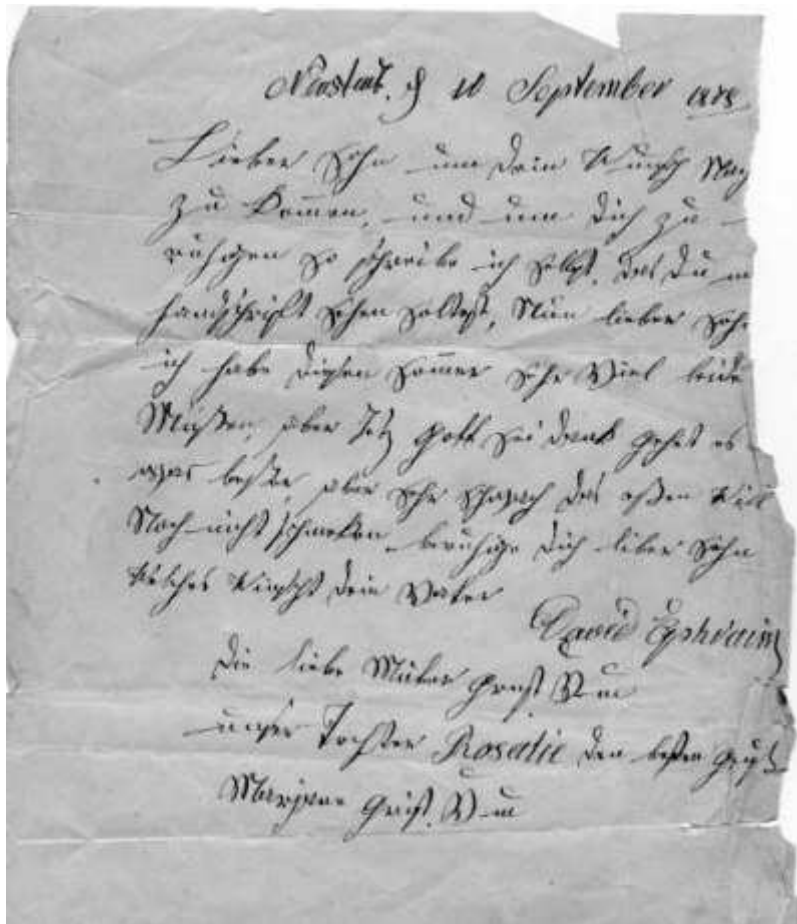 10 September 1878
Lieber Sohn um dein Wunsch Nach
zu komen, und um dich zu
ruhigen so schreibe ich selbst, das du
handschrift sehen soltest, Nun lieber Sohn
ich habe diesen Somer sehr Viel leide
Müssen, aber Jetz Gott sei dank gehet es
etwas besser, aber sehr schwach das essen Will
Noch nicht schmeken beruhige dich liber Sohn
Welches Winscht dein Vater
David Ephraim
Die liebe Muter Grust
unser Tochter Rosalie den besten Grus
Grust